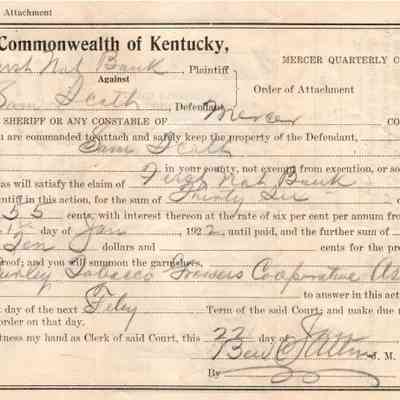 Attachment
Commonwealth of Kentucky,
First Nat Bank , Plaintiff
Against
MERCER QUARTERLY C
Sam , Defendant
Order of Attachment
SHERIFF OR ANY CONSTABLE OF Mercer CO
u are commanded to attach and safely keep the property of the Defendant,
Sam
in your county, not exempt from execution, or so
as will satisfy the claim of First Nat Bank
ntiff in this action, for the sum of Thirty Six
55 cents, with interest thereon at the rate of six per cent per annum from
day of Jan , 192 2 until paid, and the further sum of
Ten dollars and cents for the
roof; and you will summon the garnishers,
Burley Tobacco Growers Cooperative As
to answer in this act
t day of the next Feby Term of the said Court; and make due r
order on that day.
itness my hand as Clerk of said Court, this 22 day of Jan
Ben C Allin J. M.
By